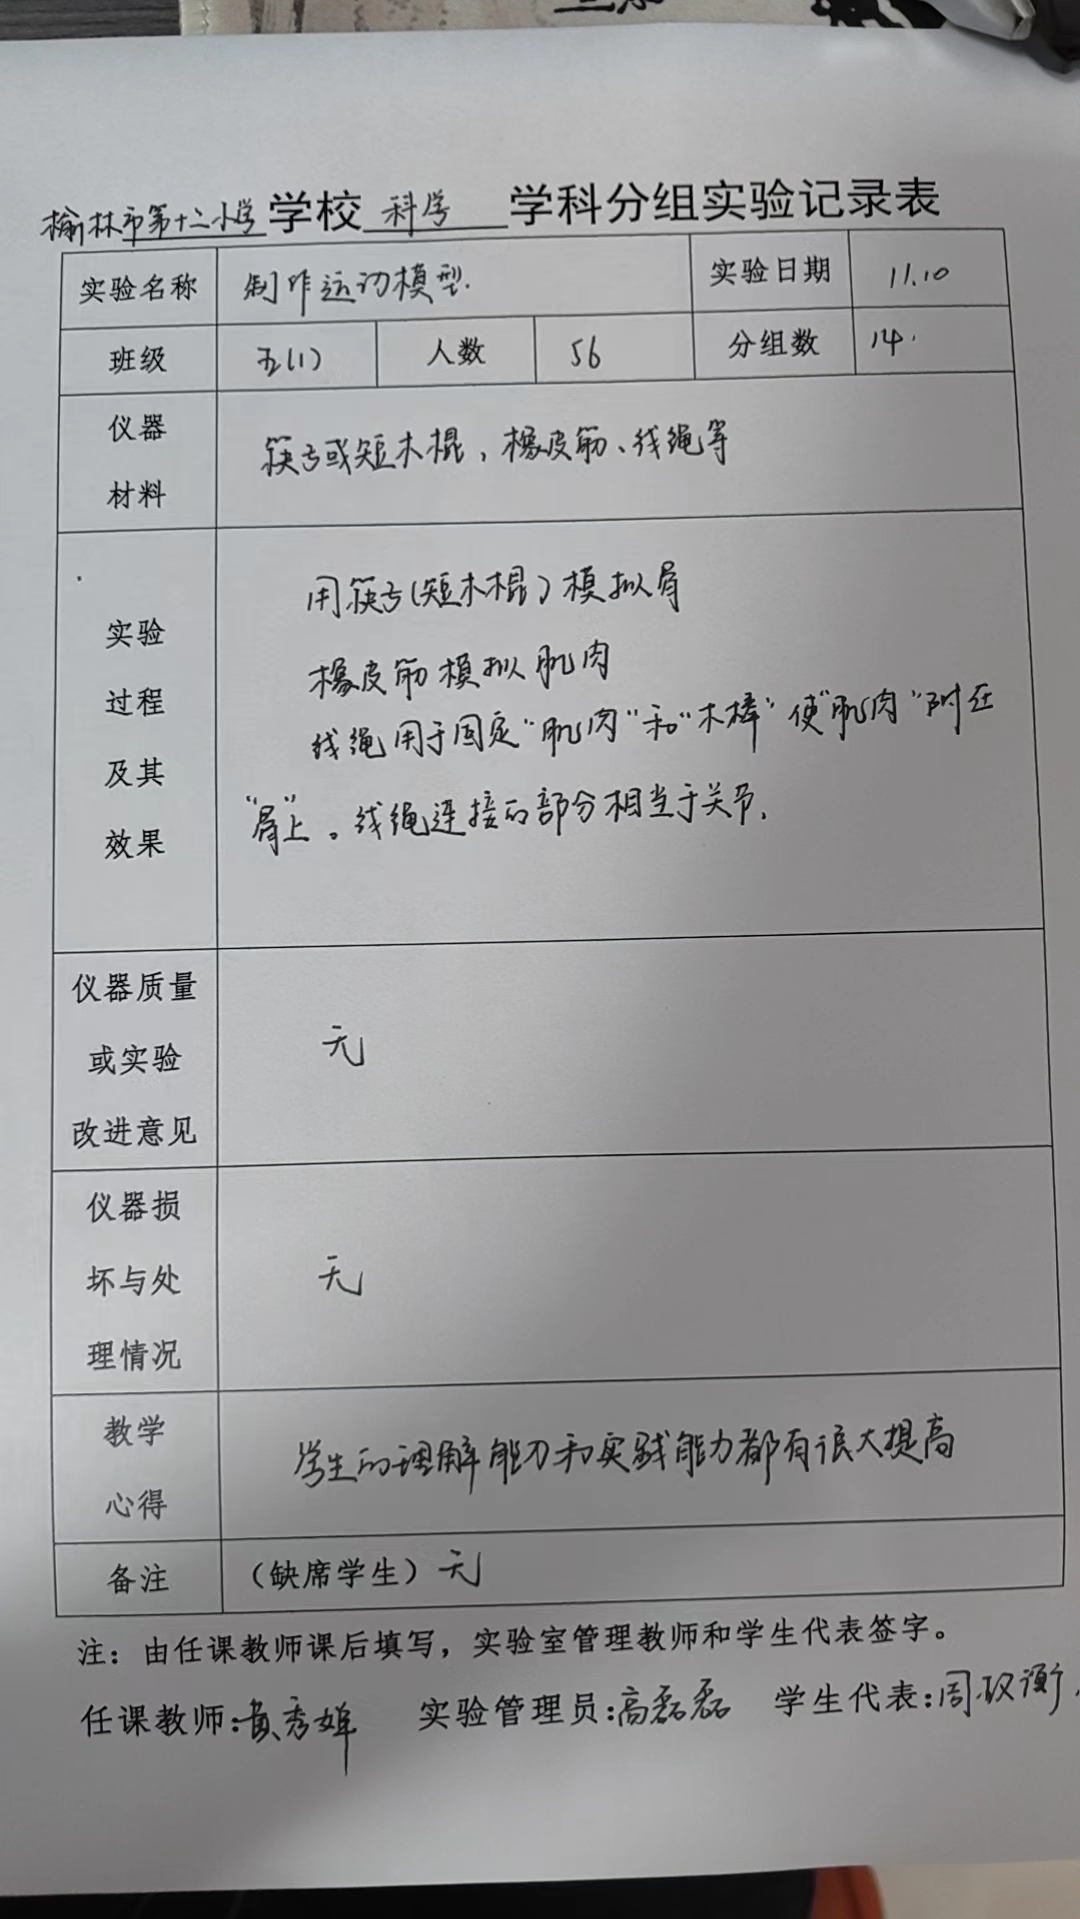 榆林市第十二小学学校 科学 学科分组实验记录表
实验名称 制作运动模型. 实验日期 11.10
班级 五(1) 人数 56 分组数 14.
仪器
材料
筷子或短木棍，橡皮筋、线绳等
实验
过程
及其
效果
用筷子(短木棍)模拟骨
橡皮筋模拟肌肉
线绳用于固定"肌肉"和"木棒"使"肌肉"附在
"骨"上。线绳连接的部分相当于关节.
仪器质量
或实验
改进意见
无
仪器损
坏与处
理情况
无
教学
心得
学生的理解能力和实践能力都有很大提高
备注 （缺席学生）无
注：由任课教师课后填写，实验室管理教师和学生代表签字。
任课教师:黄秀婵 实验管理员:高磊磊 学生代表:周